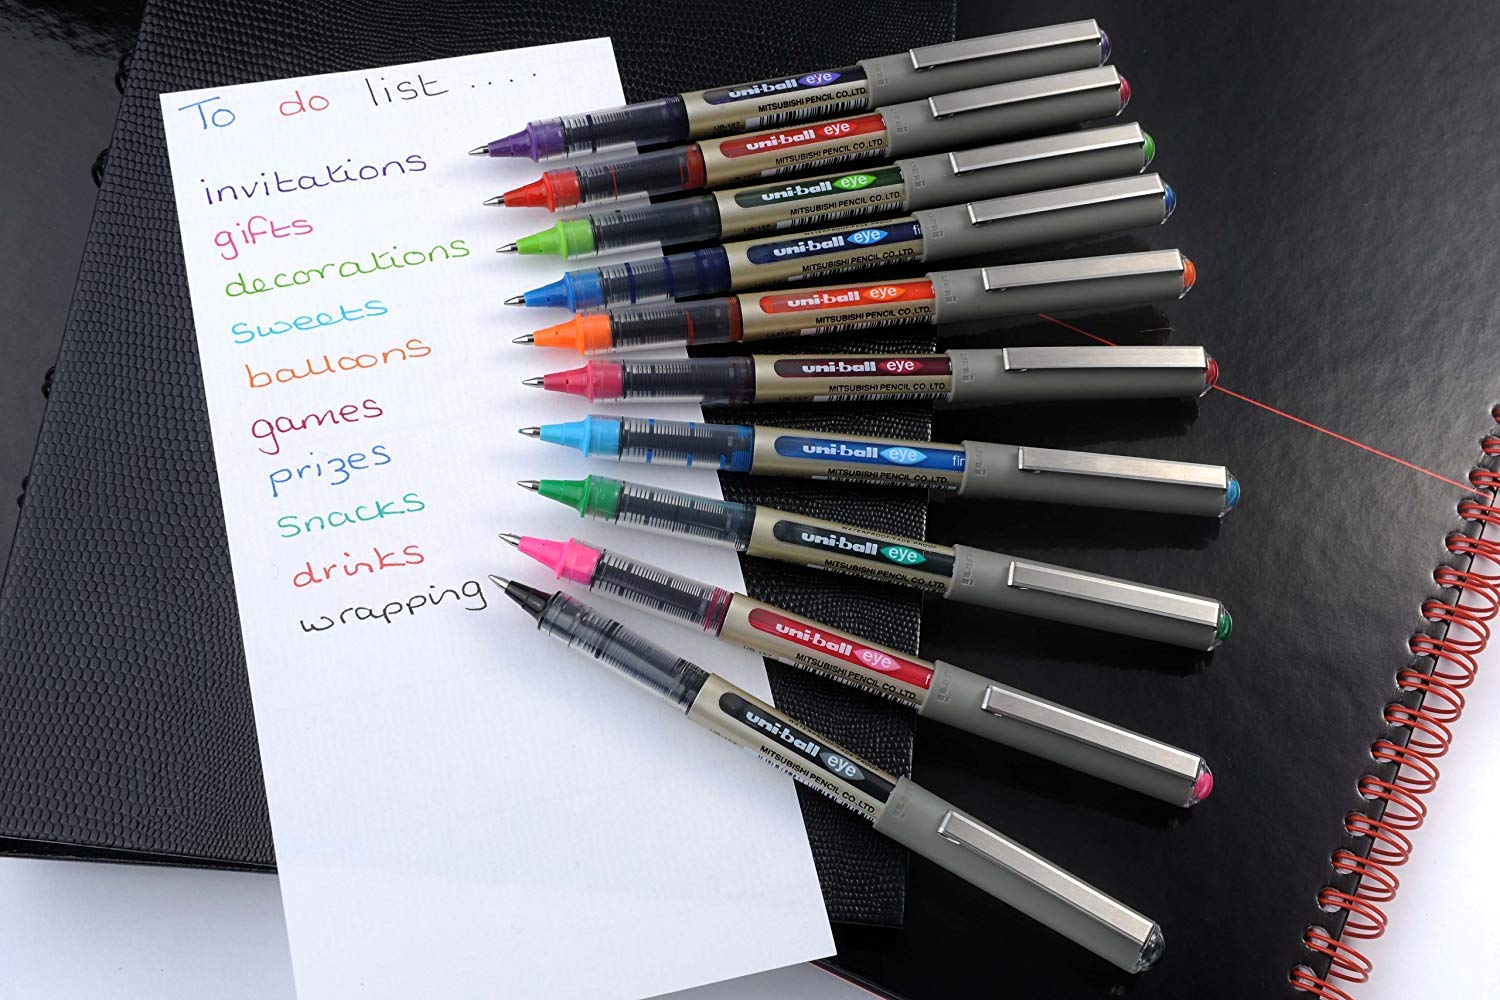 To do list ....
invitations
gifts
decorations
sweets
balloons
games
prizes
snacks
drinks
wrapping
uni-ball eye
MITSUBISHI PENCIL CO.,LTD.
UB-157
uni-ball eye
MITSUBISHI PENCIL CO.,LTD.
UB-157
uni-ball eye
MITSUBISHI PENCIL CO.,LTD.
UB-157
WATERPROOF/FADE-PROOF
uni-ball eye fin
MITSUBISHI PENCIL CO.,LTD.
uni-ball eye
MITSUBISHI PENCIL CO.,LTD.
UB-157
uni-ball eye
MITSUBISHI PENCIL CO.,LTD.
UB-157
uni-ball eye fin
MITSUBISHI PENCIL CO.,LTD.
WATERPROOF/FADE-PROOF
uni-ball eye
MITSUBISHI PENCIL CO.,LTD.
uni-ball eye f
MITSUBISHI PENCIL CO.,LTD.
UB-157
WATERPROOF/FADE-PROOF
uni-ball eye
MITSUBISHI PENCIL CO.,LTD.
UB-157